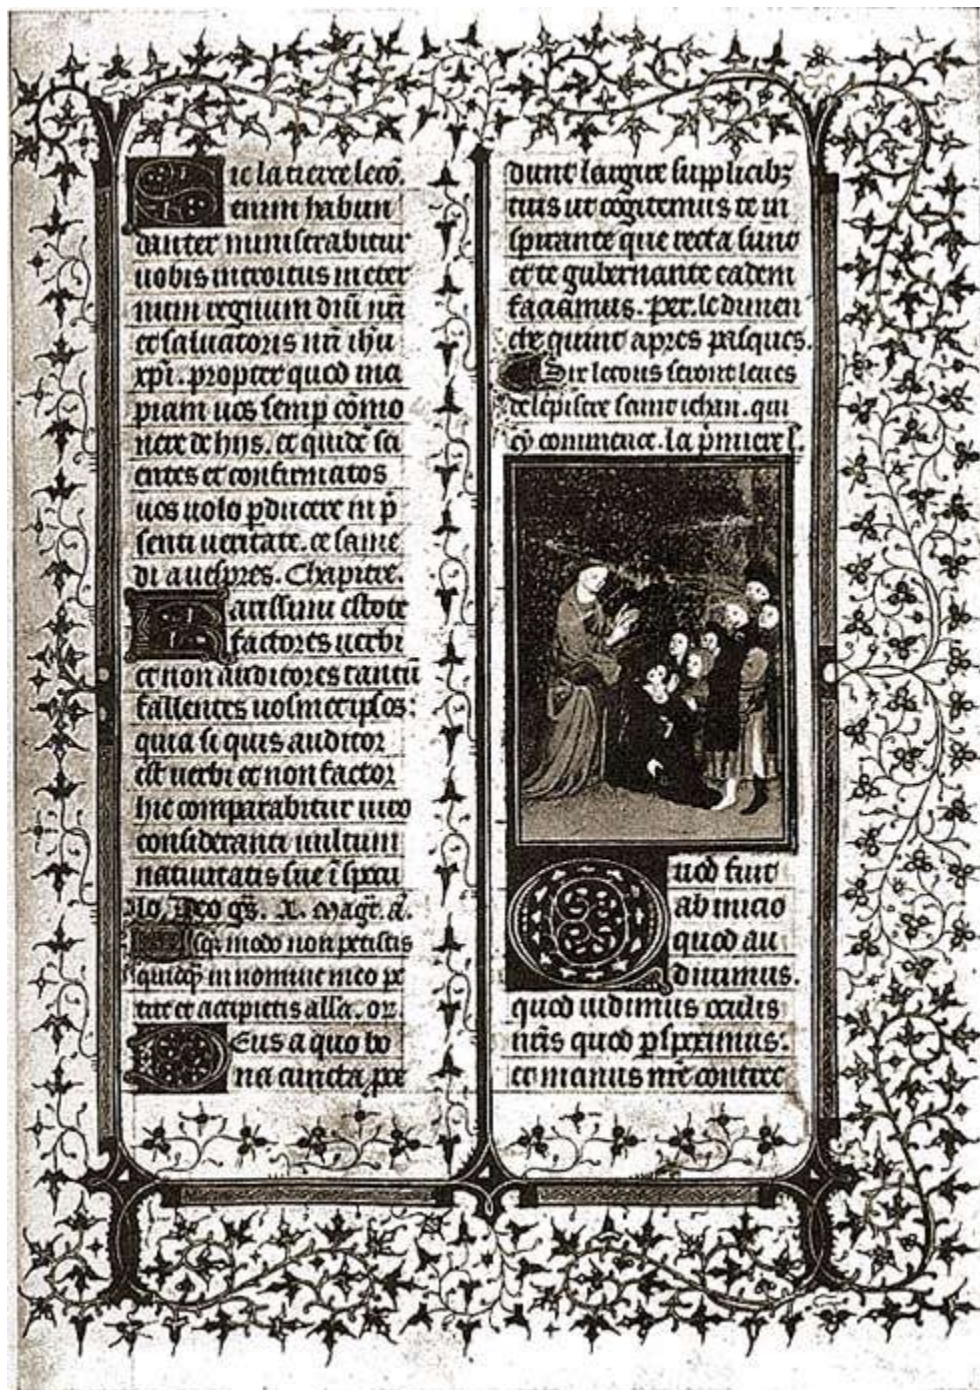 Sic la tierce lecō.
enim habun
danter ministrabitur
uobis introitus in eter
num regnum dn̄i nr̄i
et saluatoris nr̄i ihū
xp̄i. propter quod inci
piam uos semp̄ cōmo
nere de hijs. et quidē sci
entes et confirmatos
uos uolo p̄ducere in p̄
senti ueritate. ce same
di a uespres. Chapitre.
Karissimi estote
factores uerbi
et non auditores tantū
fallentes uosmetipsos:
quia si quis auditor
est uerbi et non factor
hic comparabitur uiro
consideranti uultum
natiuitatis sue ī specu
lo. Deo gr̄s. A. Magn̄. ā.
Usq̄ modo non petistis
quidq̄ in nomine meo pe
tite et accipietis alla. or̄.
Deus a quo bo
na cuncta pro
dunt largire supplicibꝫ
tuis ut cogitemus te in
spirante que recta sunt
et te gubernante eadem
faciamus. Per. le dimen
che quint apres pasques.
Six lecons seront leues
de lepistre saint iehan. qui
cy commence. la p̄miere l.
Quod fuit
ab inicio
quod au
diuimus.
quod uidimus oculis
nr̄is quod p̄speximus:
et manus nr̄e contrec